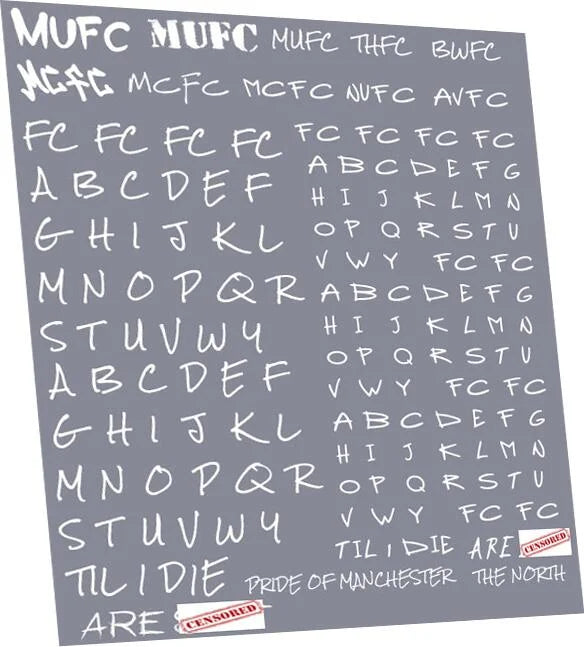 MUFC MUFC MUFC THFC BWFC
MCFC MCFC MCFC NUFC AVFC
FC FC FC FC
A B C D E F
G H I J K L
M N O P Q R
S T U V W Y
A B C D E F
G H I J K L
M N O P Q R
S T U V W Y
FC FC FC FC
A B C D E F G
H I J K L M N
O P Q R S T U
V W Y FC FC
A B C D E F G
H I J K L M N
O P Q R S T U
V W Y FC FC
A B C D E F G
H I J K L M N
O P Q R S T U
V W Y FC FC
TIL I DIE ARE CENSORED
TIL I DIE PRIDE OF MANCHESTER THE NORTH
ARE CENSORED